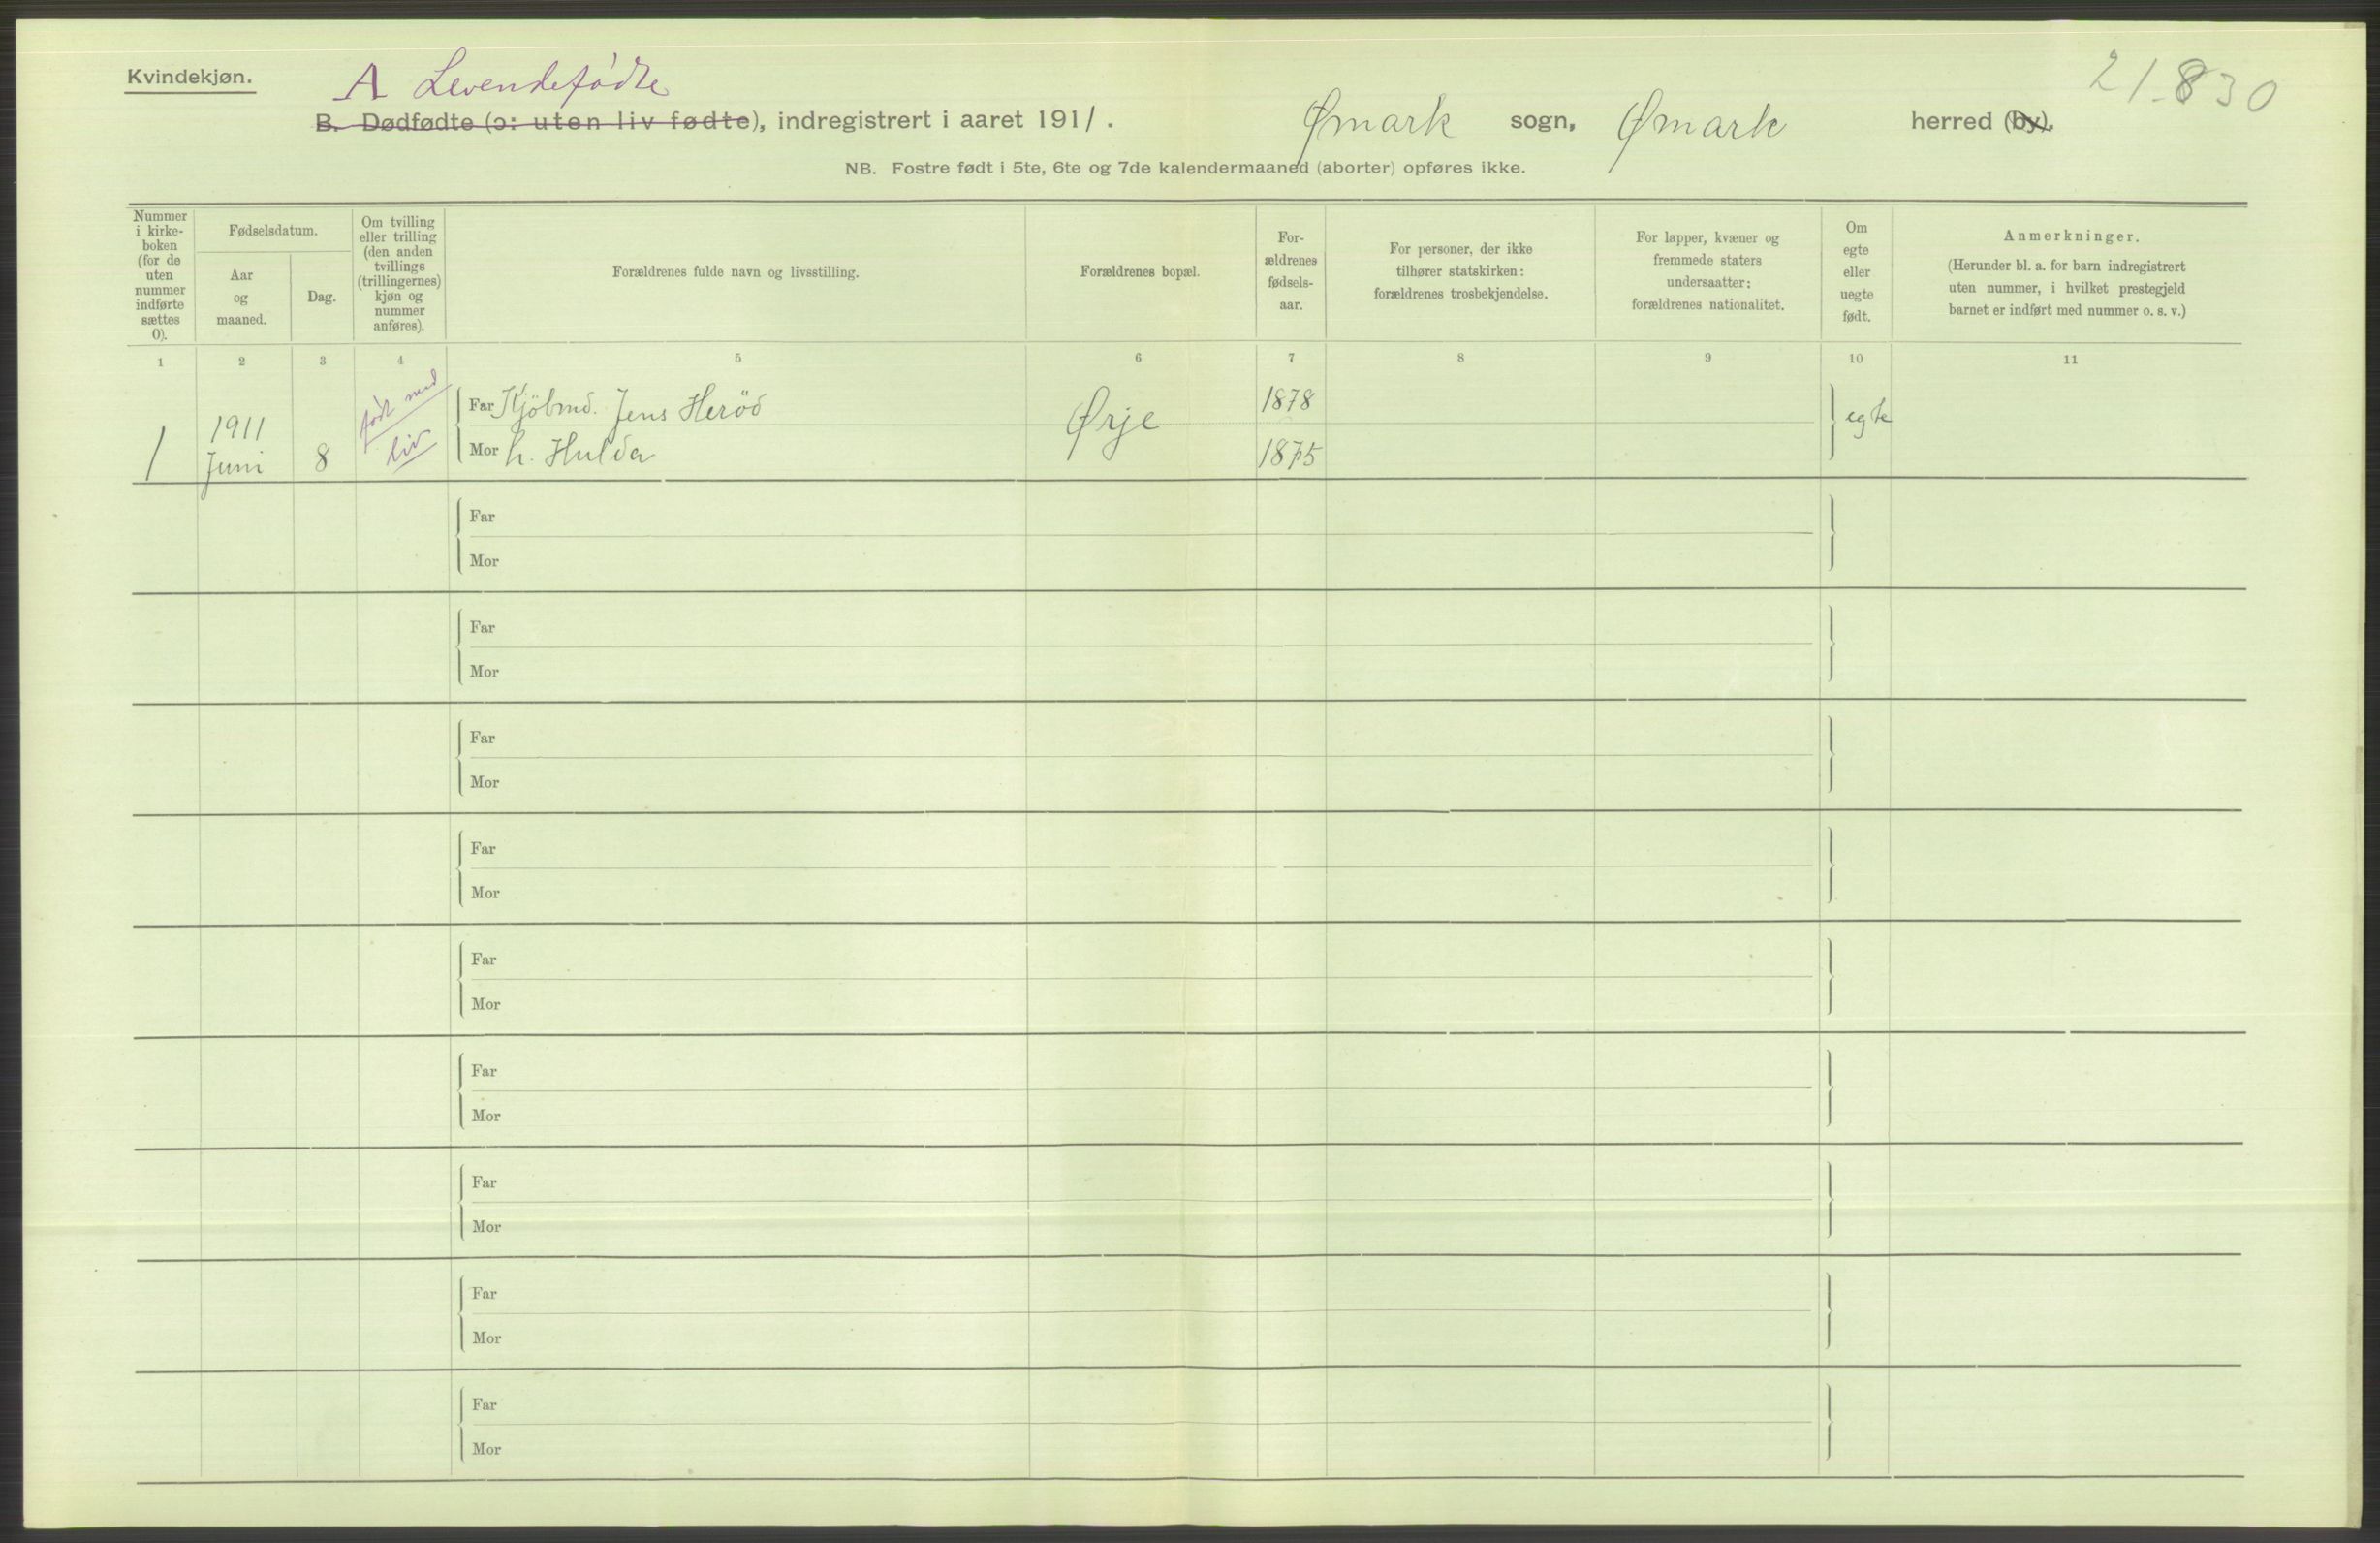 Kvindekjøn.
A Levendefødte
21.830
B. Dødfødte (ɔ: uten liv fødte), indregistrert i aaret 1911. Ømark sogn, Ømark herred (by).
NB. Fostre født i 5te, 6te og 7de kalendermaaned (aborter) opføres ikke.
Nummer
i kirke-
boken
(for de
uten
nummer
indførte
sættes
0).
Fødselsdatum.
Aar
og
maaned.
Dag.
Om tvilling
eller trilling
(den anden
tvillings
(trillingernes)
kjøn og
nummer
anføres).
Forældrenes fulde navn og livsstilling.
Forældrenes bopæl.
For-
ældrenes
fødsels-
aar.
For personer, der ikke
tilhører statskirken:
forældrenes trosbekjendelse.
For lapper, kvæner og
fremmede staters
undersaatter:
forældrenes nationalitet.
Om
egte
eller
uegte
født.
Anmerkninger.
(Herunder bl. a. for barn indregistrert
uten nummer, i hvilket prestegjeld
barnet er indført med nummer o. s. v.)
1 2 3 4 5 6 7 8 9 10 11
1
1911
Juni
8
født med
liv
Far Kjöbmd. Jens Heröd
Mor h. Hulda
Ørje
1878
1875
egte
Far
Mor
Far
Mor
Far
Mor
Far
Mor
Far
Mor
Far
Mor
Far
Mor
Far
Mor
Far
Mor